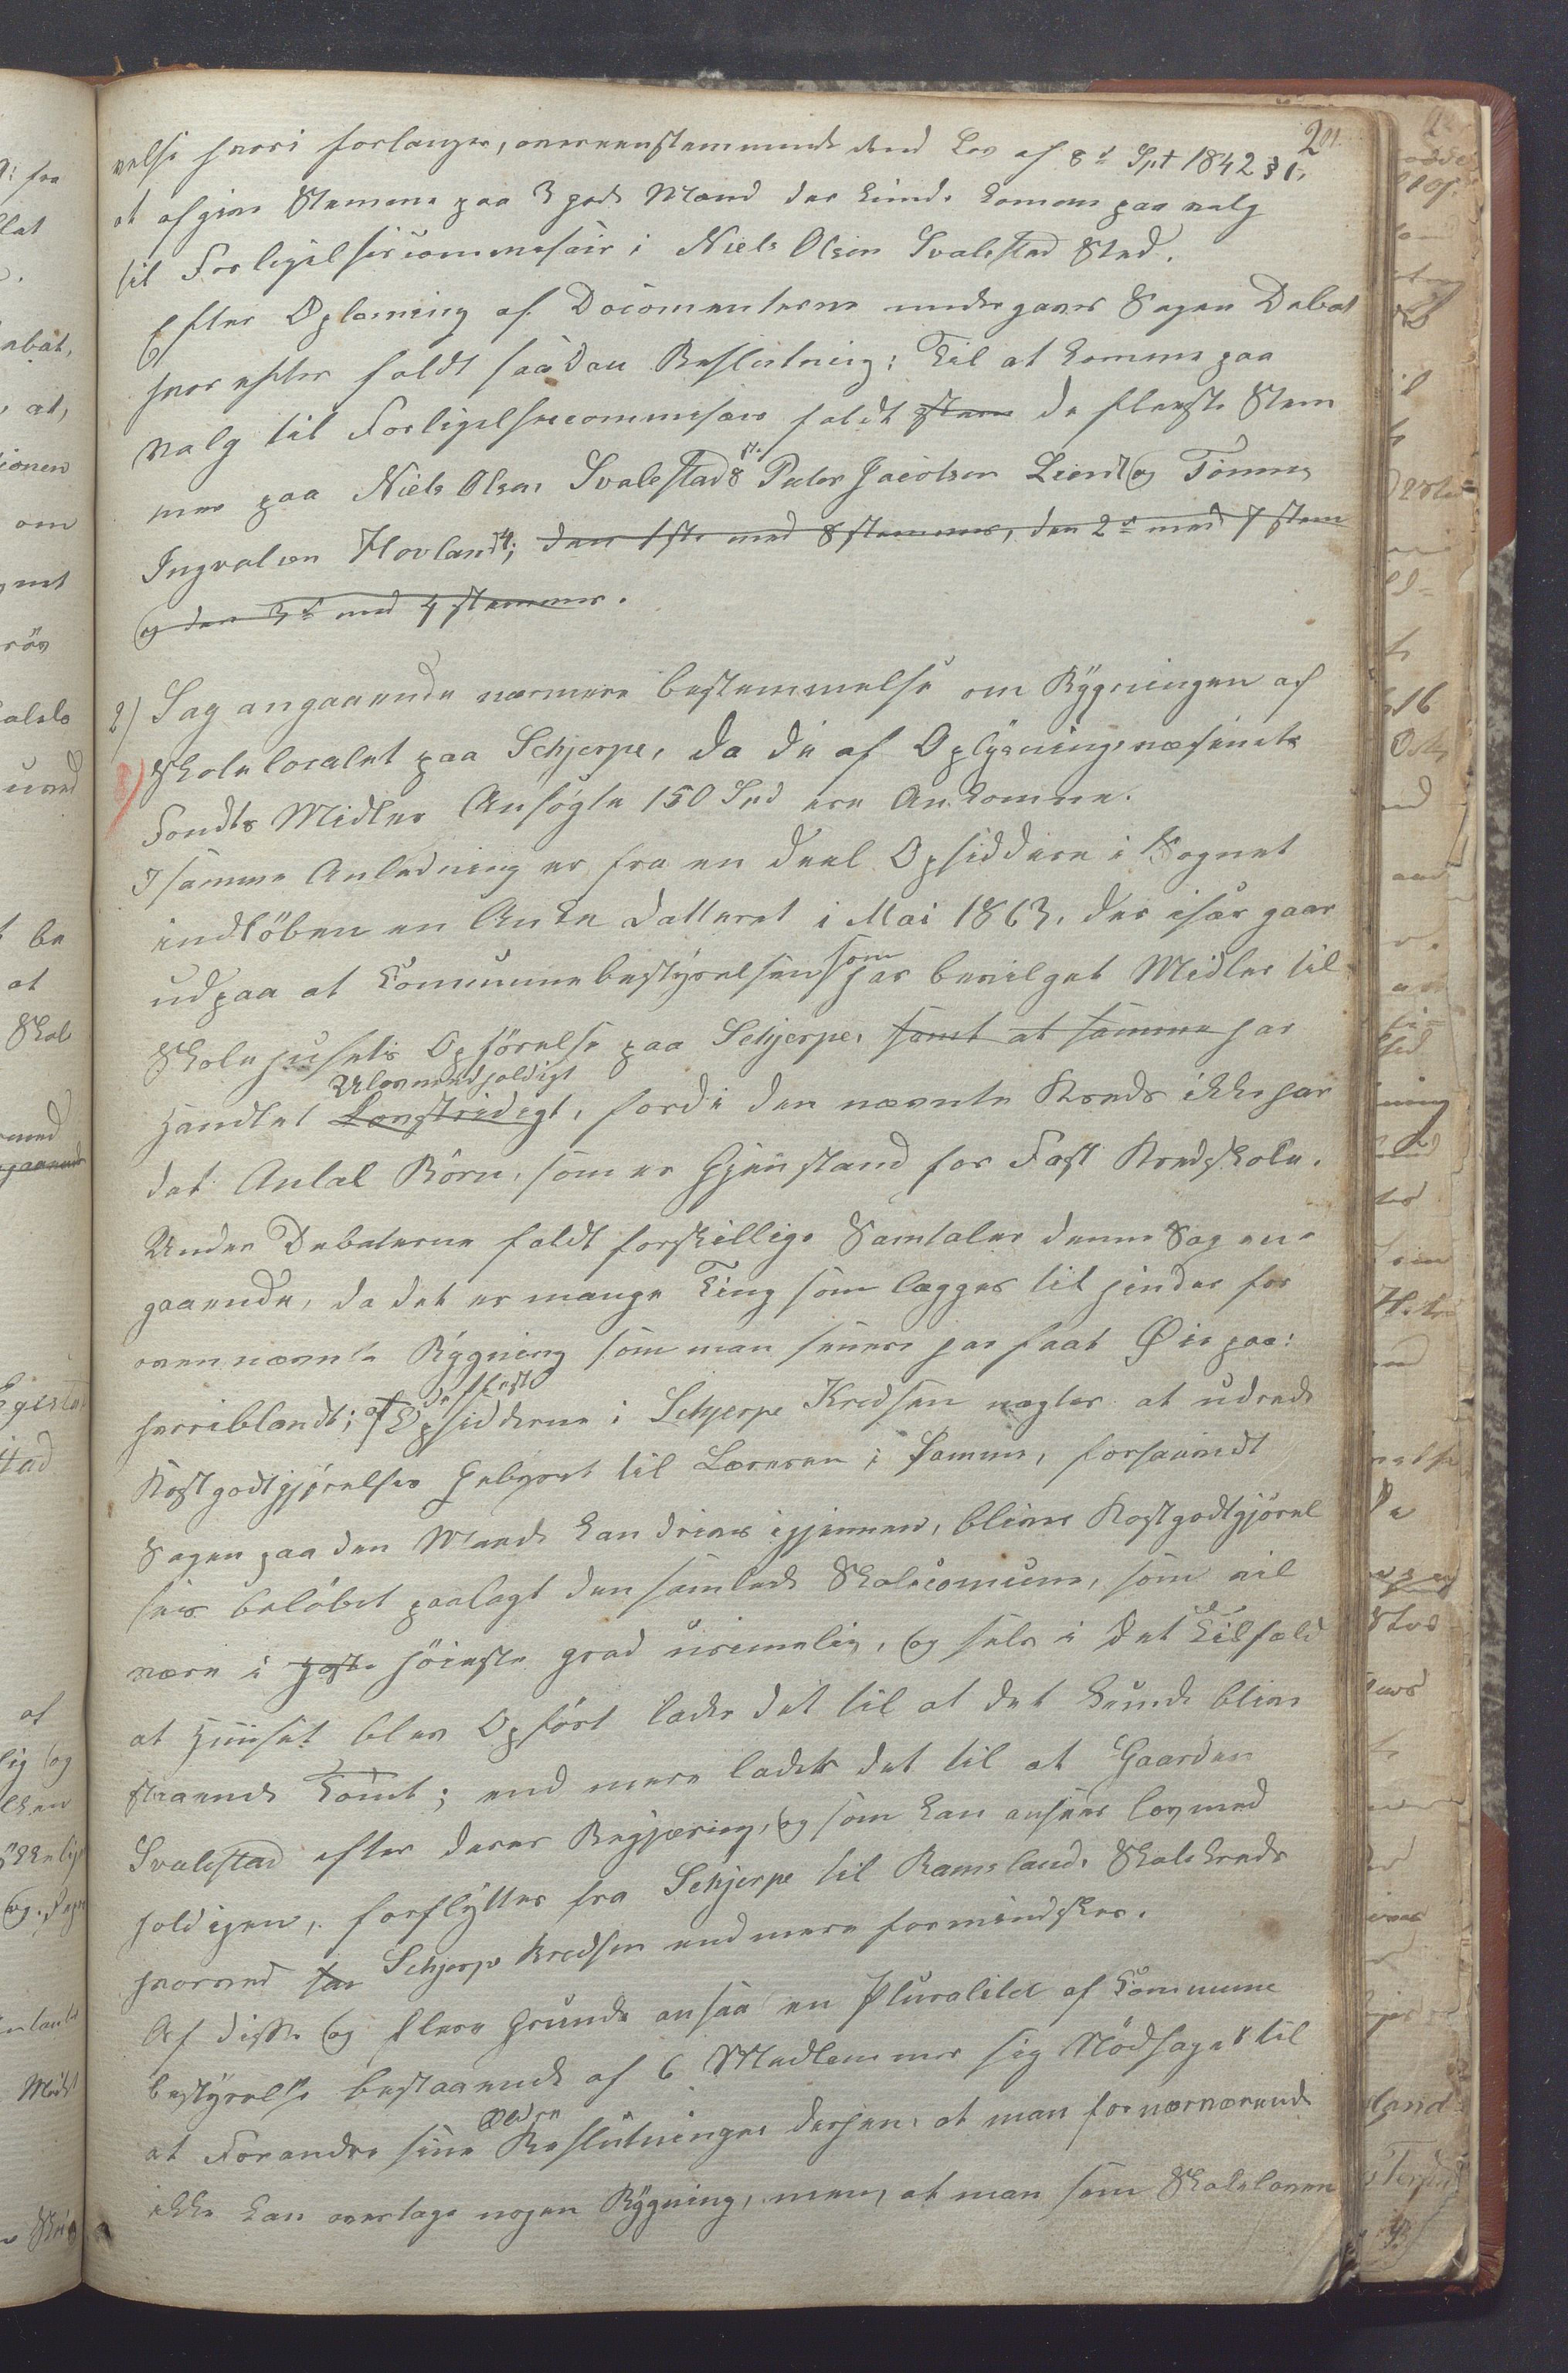 201.
velse hvori forlanges, overeenstemmende med Lov af 8de Spt 1842 § 1,
at afgive Stemme paa 3 gode Mænd der kunde komme paa valg
til Forligelsescommesair i Niels Olsen Svalestad Sted.
Efter Oplæsning af Documenterne undergaves Sagen Debat
hvorefter faldt saadan Beslutning: Til at komme paa
valg til Forligelsescommesair faldt stem de fleste Stem
mer paa Niels Olsen Svalestad 8 st. Peder Jacobsen Lien 7 og Tønnes
Ingvalsen Hovland 4; den 1ste med 8 stemmer, den 2de med 7 stem
og den 3de med 4 stemmer.
2) Sag angaaende nærmere bestemmelse om Bygningen af
Skolelocalet paa Schjerpe, da de af Oplysningsvæsenets
Fondts Midler Ansøgte 150 Spd ere Ankomne.
I samme Anledning er fra en deel Opsiddere i Sognet
indløben en Anke datteret i Mai 1863, der især gaar
ud paa at Communebestyrelsen som har bevilget Midler til
Skolehusets Opførelse paa Schjerpe, samt at samme har
handlet Lovstridigt Ulovmedholdigt, fordi den nævnte Kreds ikke har
det Antal Børn, som er Gjenstand for Fast Kredsskole.
Under Debaterne faldt forskillige Samtaler denne Sag an-
gaaende, da det er mange Ting som lægges til hinder for
ovennævnte Bygning som man senere har faat Øie paa:
herriblandt; at de fleste Opsidderne i Schjerpe Kredsen nægter at udrede
Kostgodtgjørelses Gebyret til Læreren i Samme, forsaavidt
Sagen paa den Maade kan drives igjennem, blives Kostgodtgjørel
ses beløbet paalagt den samlede Skolecomune, som vil
være i høste høieste grad urimelig, og selv i det Tilfæld
at Huuset blev Opført lader det til at det kunde blive
staaende Tomt; end mere lader det til at Gaarden
Svalestad efter deres Begjæring, og som kan ansees lovmed
holdigen, forflyttes fra Schjerpe til Ramslands Skolekreds
hvorved Schjerpe Kredsen end mere formindskes.
Af disse og flere Grunde ansaa en Pluralitet af Commune
bestyrelse bestaaende af 6 Medlemmer sig Nødsaget til
at Forandre sine Ældre Beslutninger derhen: at man for nærværende
ikke kan overtage nogen Bygning, men, at man som Skoleloven